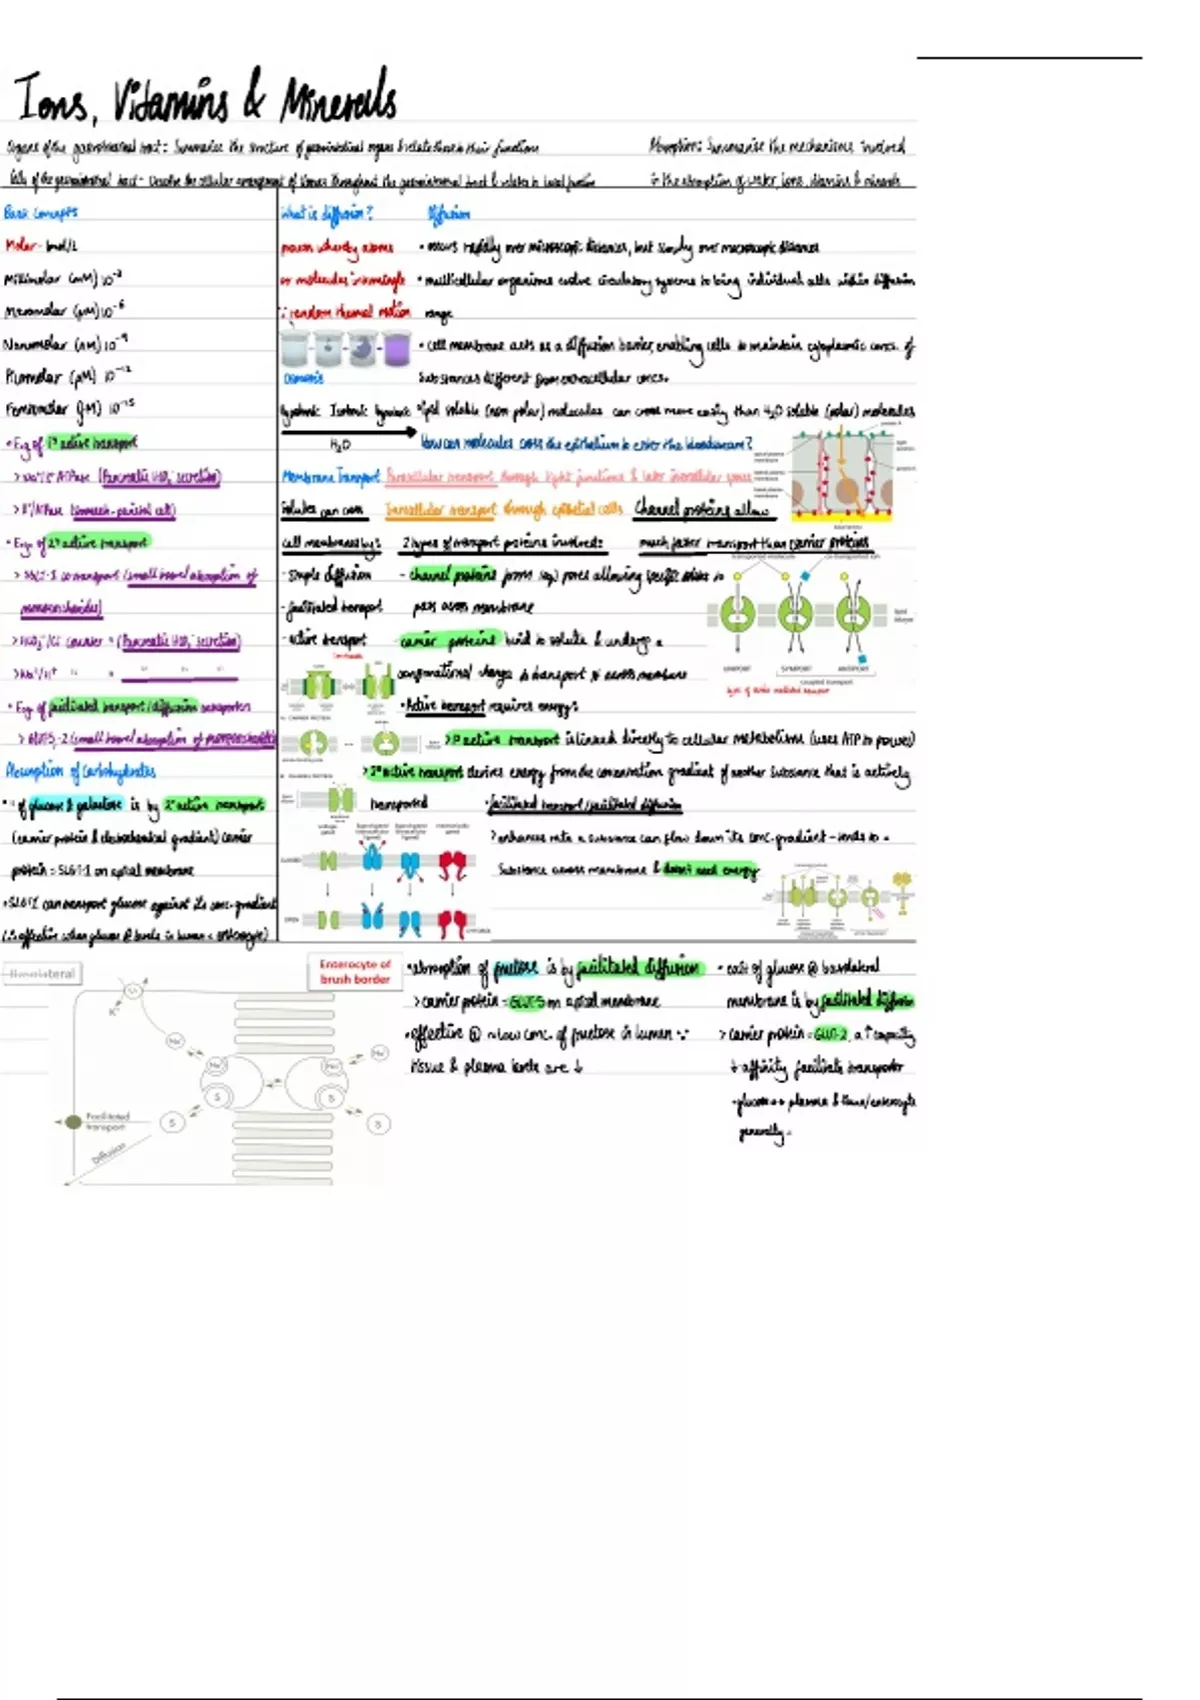 Ions, Vitamins & Minerals
Organs of the gastrointestinal tract: Summarise the structure of gastrointestinal organs & relate these to their functions
Cells of the gastrointestinal tract - Describe the cellular arrangement of tissues throughout the gastrointestinal tract & relate to local function
Absorption: Summarise the mechanisms involved
in the absorption of water, ions, vitamins & minerals
Basic Concepts
Molar - 1mol/L
Millimolar (mM) 10⁻³
Micromolar (µM) 10⁻⁶
Nanomolar (nM) 10⁻⁹
Picomolar (pM) 10⁻¹²
Femtomolar (fM) 10⁻¹⁵
• E.g. of 1° active transport
> Na⁺/K⁺ ATPase (Pancreatic HCO₃⁻ secretion)
> H⁺/ATPase (stomach - parietal cell)
• E.g. of 2° active transport
> SGLT-1 co transport (small bowel absorption of
monosaccharides)
> HCO₃⁻/Cl⁻ counter " (Pancreatic HCO₃⁻ secretion)
> Na⁺/H⁺ " " " " "
• E.g. of facilitated transport/diffusion
> GLUT-5, -2 (small bowel absorption of monosaccharides)
Absorption of Carbohydrates
of glucose & galactose is by 2° active transport
(carrier protein & electrochemical gradient) carrier
protein = SGLT-1 on apical membrane
• SGLT-1 can transport glucose against its conc. gradient
What is diffusion?
process whereby atoms
or molecules intermingle
∵ random thermal motion
Osmosis
Hypotonic Isotonic
H₂O
Membrane Transport
Solutes can cross
cell membranes by:
- simple diffusion
- facilitated transport
- active transport
Diffusion
• occurs rapidly over microscopic distances, but slowly over macroscopic distances
• multicellular organisms evolve circulatory systems to bring individual cells within diffusion
range
• cell membrane acts as a diffusion barrier, enabling cells to maintain cytoplasmic concs. of
substances different from extracellular concs.
• lipid soluble (non polar) molecules can cross more easily than H₂O soluble (polar) molecules
How can molecules cross the epithelium to enter the bloodstream?
Paracellular transport through tight junctions & later intercellular spaces
Transcellular transport through epithelial cells
Channel proteins allow
much faster transport than carrier proteins
2 types of transport proteins involved:
- channel proteins form (aq) pores allowing specific solutes to
pass across membrane
- carrier proteins bind to solute & undergo a
conformational change to transport it across membrane
• Active transport requires energy:
> 1° active transport is linked directly to cellular metabolism (uses ATP to power)
> 2° active transport derives energy from the concentration gradient of another substance that is actively
transported
• facilitated transport/facilitated diffusion
> enhances rate a substance can flow down its conc. gradient
substance across membrane & doesn't need energy
UNIPORT SYMPORT ANTIPORT
coupled transport
types of carrier mediated transport
CLOSED
OPEN
Enterocyte of
brush border
K⁺
Na⁺
Na⁺ Na⁺ Na⁺
S S
S S
Facilitated
transport
Diffusion
• absorption of fructose is by facilitated diffusion
> carrier protein = GLUT-5 on apical membrane
• effective @ low conc. of fructose in lumen ∵
tissue & plasma levels are ↓
• exit of glucose @ basolateral
membrane is by facilitated diffusion
> carrier protein = GLUT-2, a ↑ capacity
↓ affinity facilitate transporter
generally.